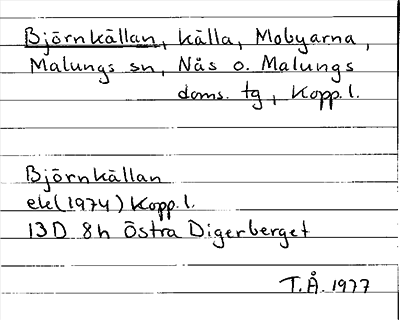 Björnkällan, källa, Mobyarna,
Malungs sn, Nås o. Malungs
doms. tg, Kopp. l.
Björnkällan
ek (1974) Kopp. l.
13D 8h Östra Digerberget
T.Å. 1977